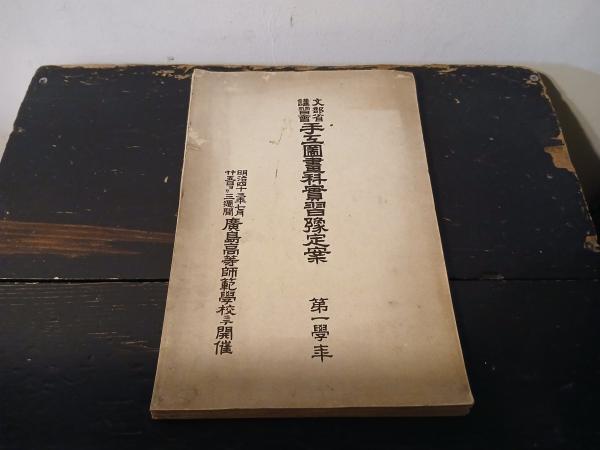 文部省
講習會
手工圖畫科實習豫定案
第一學年
明治四十三年七月
廿五日ヨリ三週間
廣島高等師範學校ニテ開催